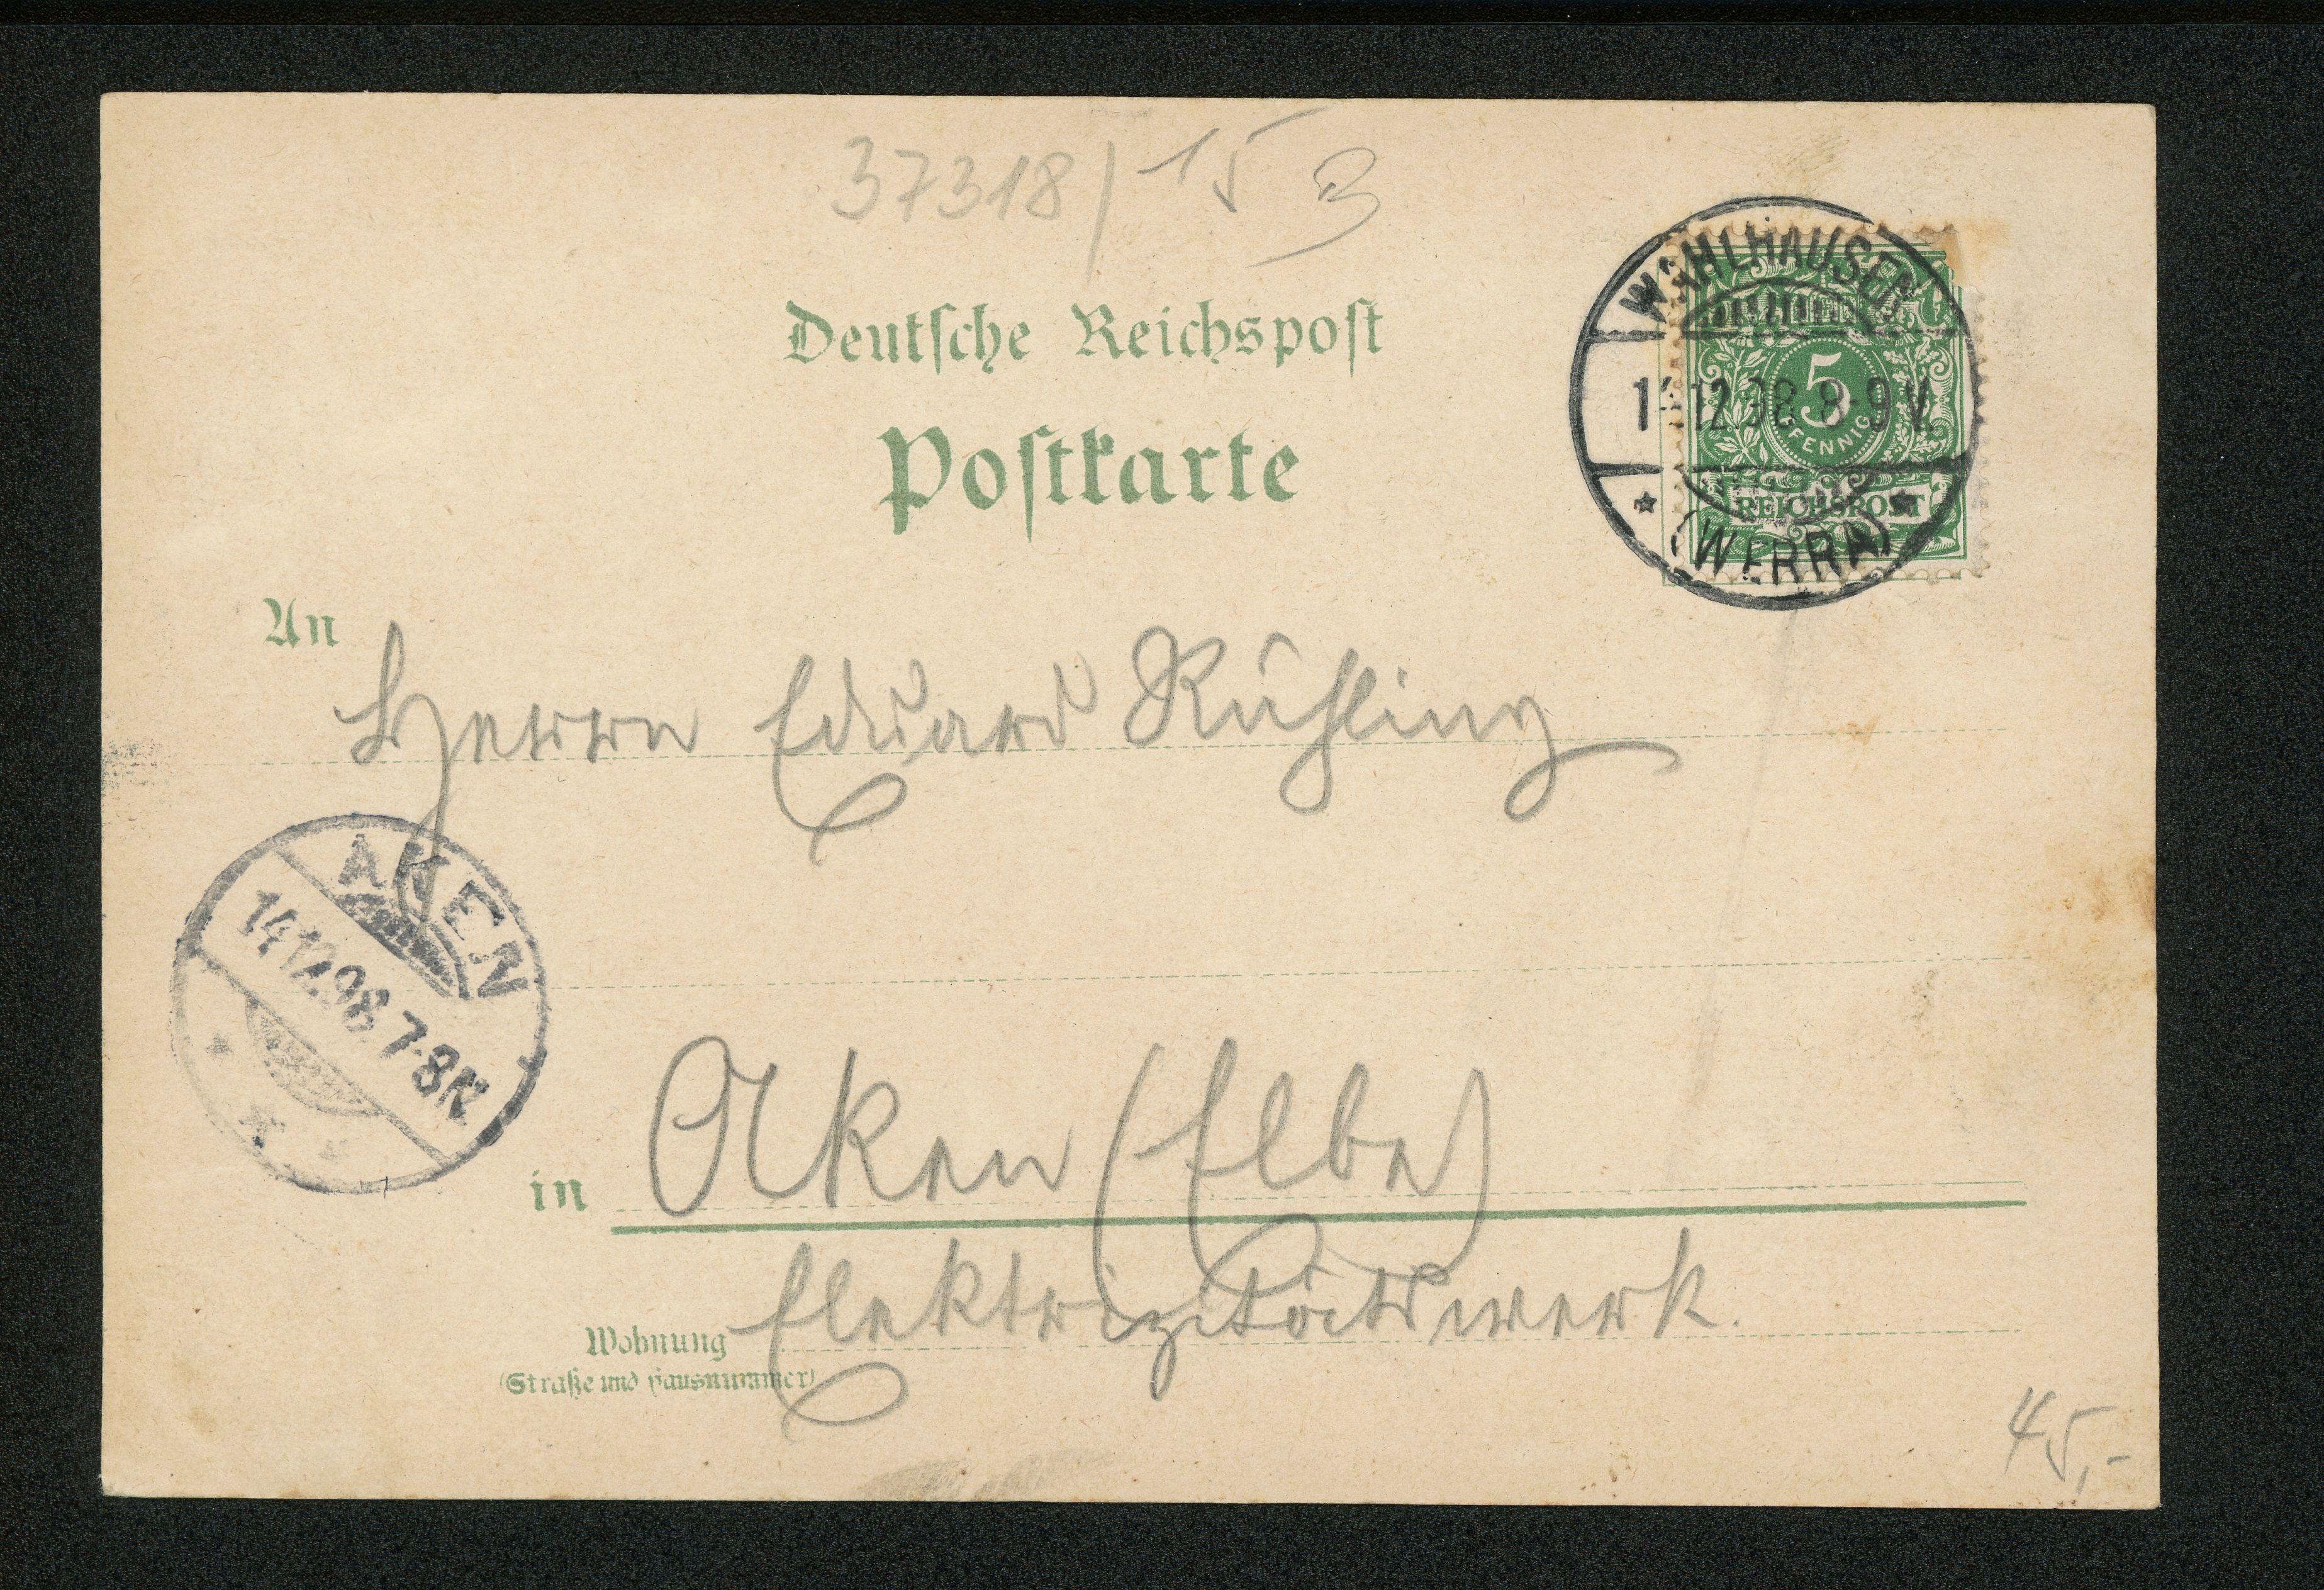 37318/15 B
Deutsche Reichspost
Postkarte
WAHLHAUSEN
12 98 8-9 V.
(WERRA)
5
PFENNIG
REICHSPOST
An
Herrn Eduard Rühling
AKEN
14 12 98 7-8N
in Aken (Elbe)
Wohnung Elektrizitätswerk.
(Straße und Hausnummer)
45,-